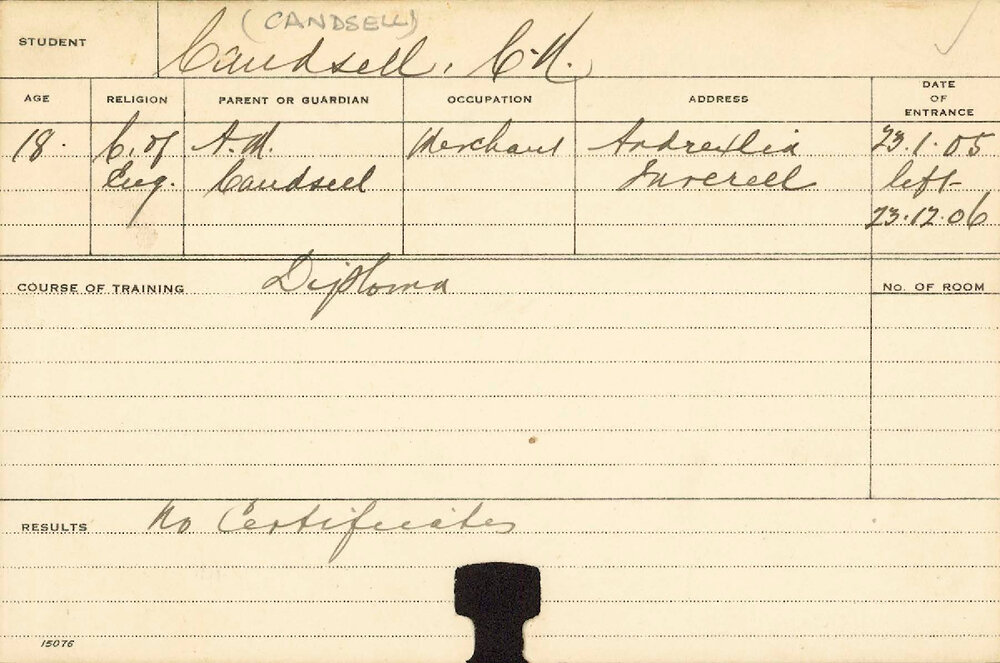 (CANDSELL)
STUDENT Candsell, C.N.
AGE RELIGION PARENT OR GUARDIAN OCCUPATION ADDRESS DATE OF ENTRANCE
18. C. of A. N. Merchant 23.1.05
Eng. Candsell Inverell left
23.12.06
COURSE OF TRAINING Diploma No. OF ROOM
RESULTS No Certificates
15076